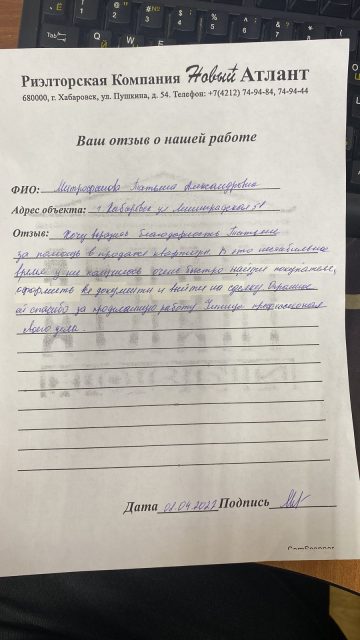 Риэлторская Компания Новый Атлант
680000, г. Хабаровск, ул. Пушкина, д. 54. Телефон: +7(4212) 74-94-84, 74-94-44
Ваш отзыв о нашей работе
ФИО: Митрофанова Татьяна Александровна
Адрес объекта: г. Хабаровск ул
Отзыв: Хочу выразить благодарность Татьяне
за помощь в продаже квартиры. В это нестабильное
время у нас получилось очень быстро найти покупателя,
оформить все документы и выйти на сделку. Огромное
ей спасибо за проделанную работу.
своего дела
Дата 01.04.2022 Подпись
CamScanner